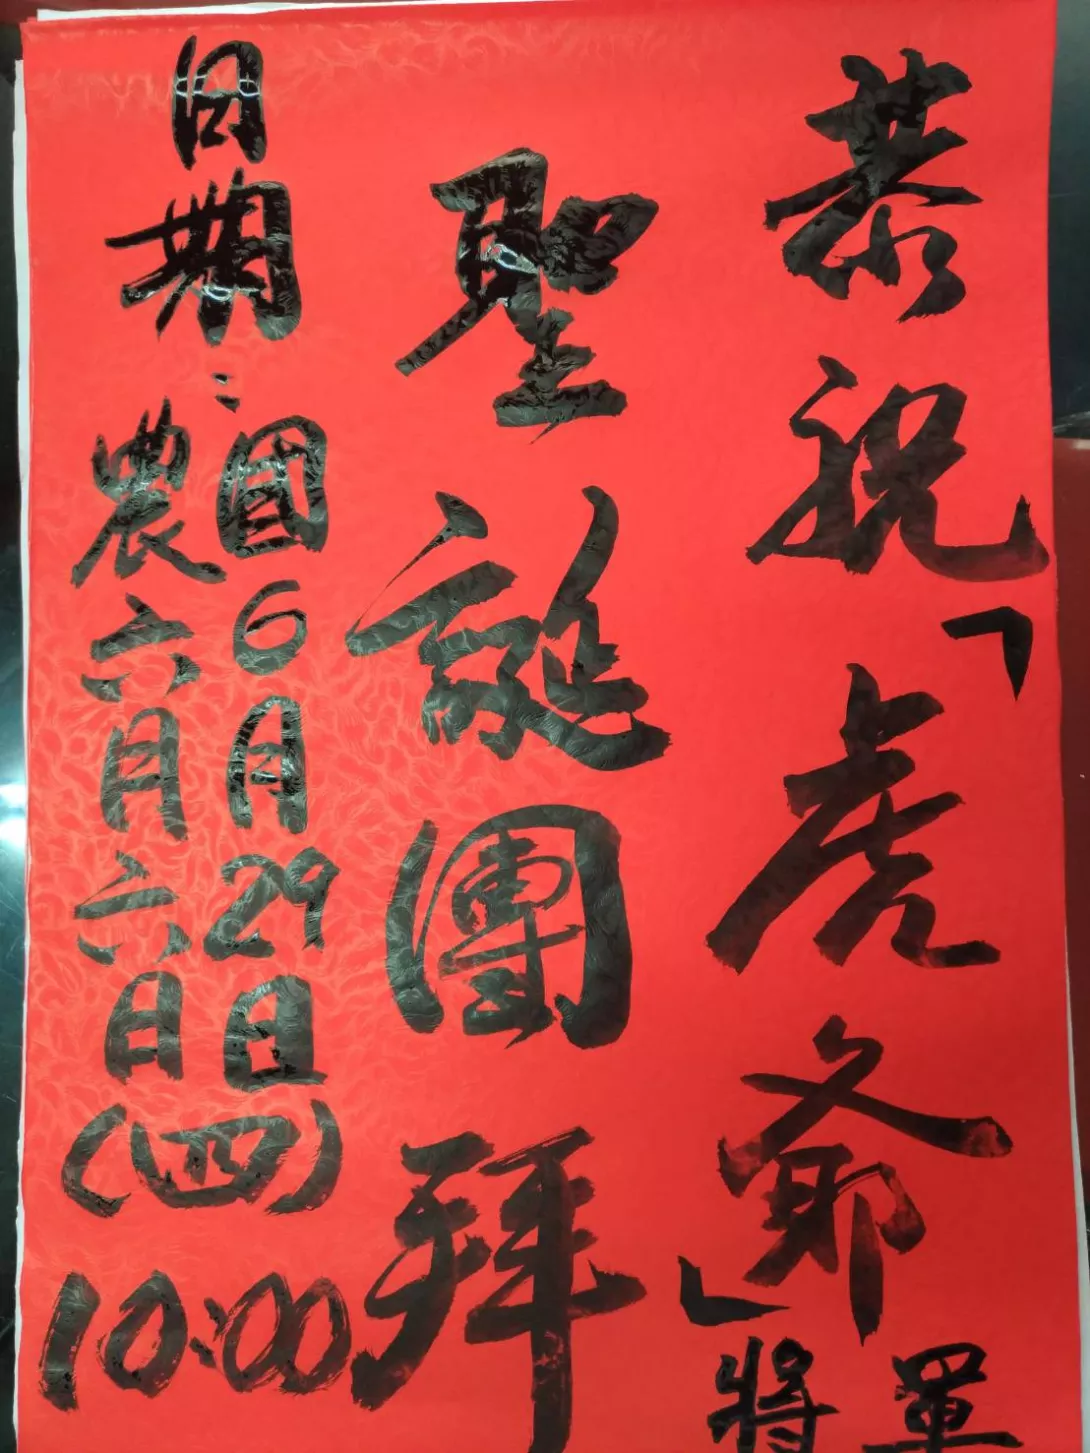 恭祝「虎爺」將軍
聖誕團拜
日期:
國6月29日(四)
農六月六日
10:00